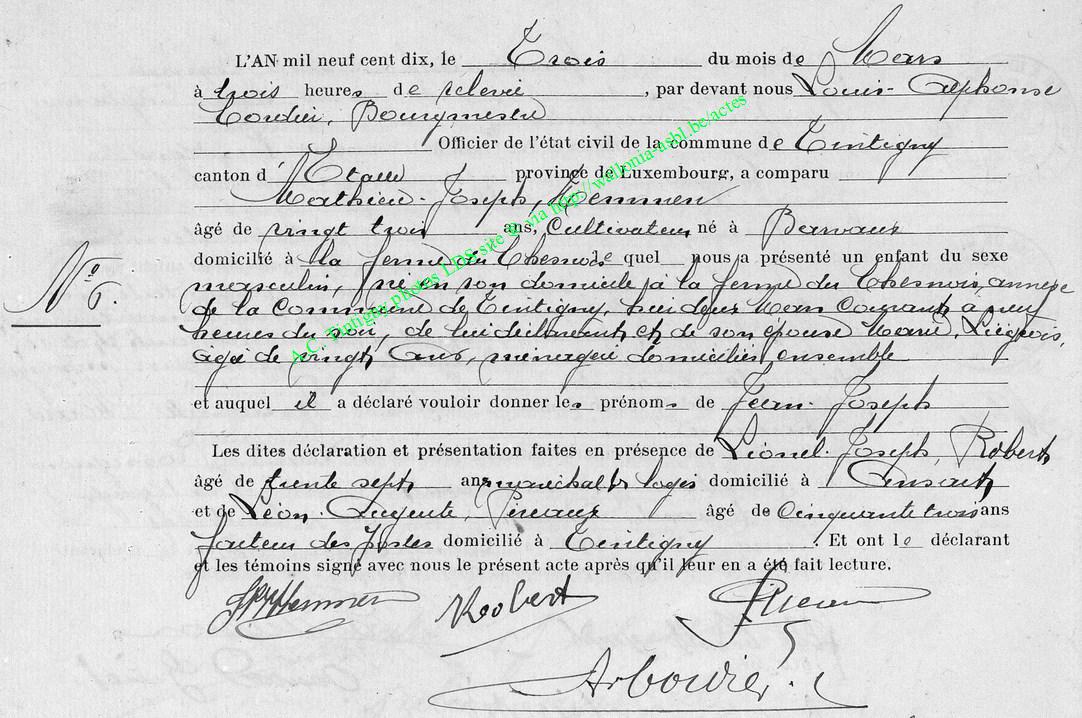 L'AN mil neuf cent dix, le Trois du mois de Mars
à trois heures de relevée, par devant nous Louis-Alphonse
Bourgmestre
Officier de l'état civil de la commune de Tintigny
canton d'Etalle province de Luxembourg, a comparu
Mathieu-Joseph, Hemmen
âgé de vingt trois ans, Cultivateur né à Barvaux
domicilié à la ferme du Chesnois le quel nous a présenté un enfant du sexe
masculin, né en son domicile à la ferme du Chesnois, annexe
de la Commune de Tintigny, hier deux Mars Courant à neuf
heures du soir, de lui déclarant et de son épouse Marie, Liégeois,
agée de vingt Ans, ménagère domiciliés ensemble
et auquel il a déclaré vouloir donner les prénoms de Jean-Joseph
Les dites déclaration et présentation faites en présence de Lionel-Joseph, Robert
âgé de trente sept ans maréchal des loges domicilié à Ansart
et de Léon-Auguste, âgé de Cinquante trois ans
facteur des Postes domicilié à Tintigny. Et ont le déclarant
et les témoins signé avec nous le présent acte après qu'il leur en a été fait lecture.
N° 6.
Hemmen Robert
A.C. Tintigny photos LDS site @ via http://wallonia-asbl.be/actes